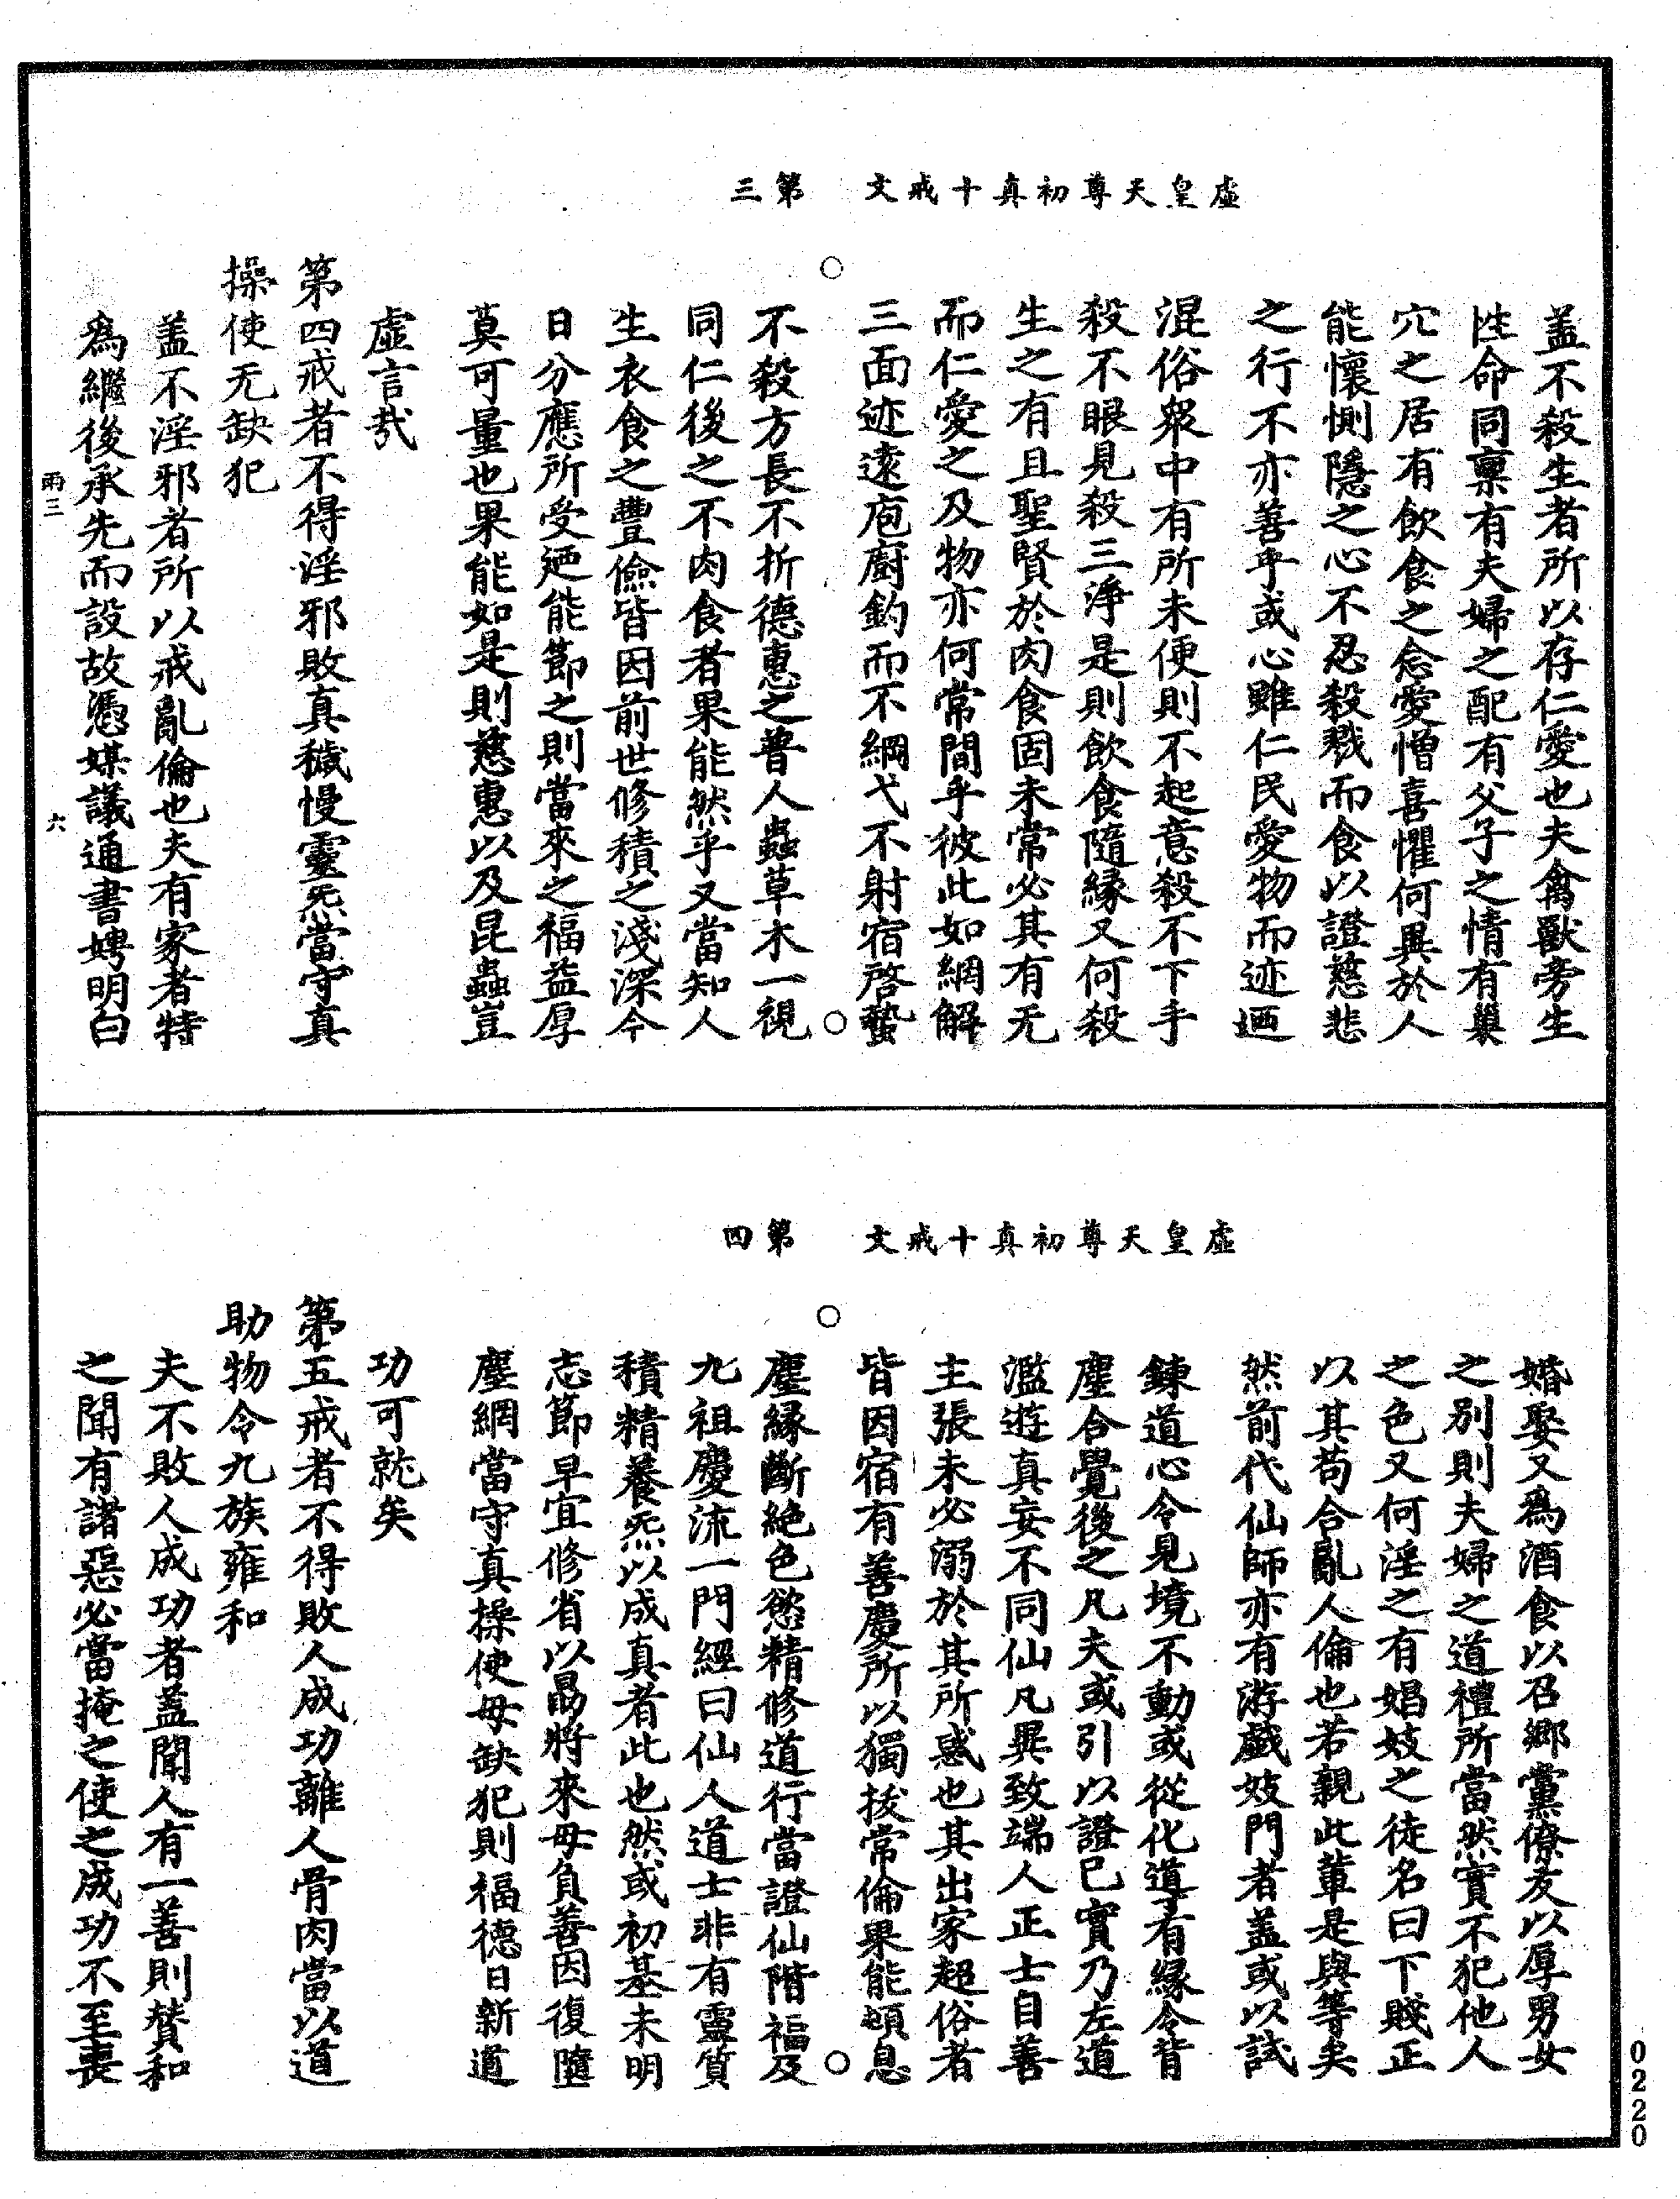 虛皇天尊初真十戒文　第三
盖不殺生者所以存仁愛也夫禽獸旁生
性命同禀有夫婦之配有父子之情有巢
穴之居有飲食之念愛憎喜懼何異於人
能懷惻隱之心不忍殺戮而食以證慈悲
之行不亦善乎或心雖仁民愛物而迹迺
混俗衆中有所未便則不起意殺不下手
殺不眼見殺三淨是則飲食隨緣又何殺
生之有且聖賢於肉食固未常必其有无
而仁愛之及物亦何常間乎彼此如網解
三面迹遠庖廚釣而不綱弋不射宿啓蟄
不殺方長不折德惠之普人蟲草木一視
同仁後之不肉食者果能然乎又當知人
生衣食之豐儉皆因前世修積之淺深今
日分應所受廼能節之則當來之福益厚
莫可量也果能如是則慈惠以及昆蟲豈
虛言㢤
第四戒者不得淫邪敗真穢慢靈炁當守真
操使无缺犯
盖不淫邪者所以戒亂倫也夫有家者特
為繼後承先而設故憑媒議通書娉明白
雨三　六
虛皇天尊初真十戒文　第四
婚娶又為酒食以召鄉黨僚友以厚男女
之別則夫婦之道禮所當然實不犯他人
之色又何淫之有娼妓之徒名曰下賤正
以其苟合亂人倫也若親此輩是與等矣
然前代仙師亦有游戲妓門者盖或以試
鍊道心令見境不動或從化道了有緣令背
塵合覺後之凡夫或引以證已實乃左道
濫遊真妄不同仙凡異致端人正士自善
主張未必溺於其所惑也其出家超俗者
皆因宿有善慶所以獨拔常倫果能頓息
塵緣斷絕色慾精修道行當證仙階福及
九祖慶流一門經曰仙人道士非有靈質
積精養炁以成真者此也然或初基未明
志節早宜修省以勗將來毋負善因復墮
塵網當守真操使毋缺犯則福德日新道
功可就矣
第五戒者不得敗人成功離人骨肉當以道
助物令九族雍和
夫不敗人成功者盖聞人有一善則賛和
之聞有諸惡必當掩之使之成功不至喪
0220